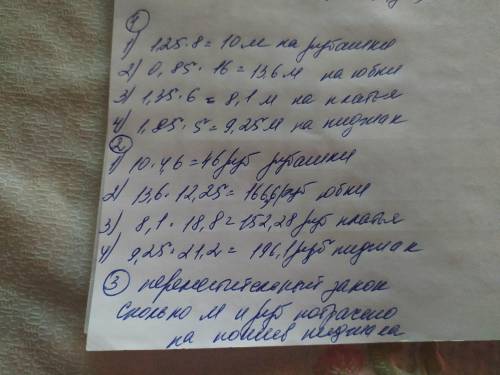 1
1) 125·8=10м на рубашки
2) 0,85·16=13,6м на юбки
3) 1,35·6=8,1м на платья
4) 1,85·5=9,25м на пиджак
2
1) 10·4,6=46руб рубашки
2) 13,6·12,25=166,6руб юбки
3) 8,1·18,8=152,28руб платья
4) 9,25·21,2=196,1руб пиджак
3 переместительный закон
сколько м и руб потрачено
на пошив пиджака